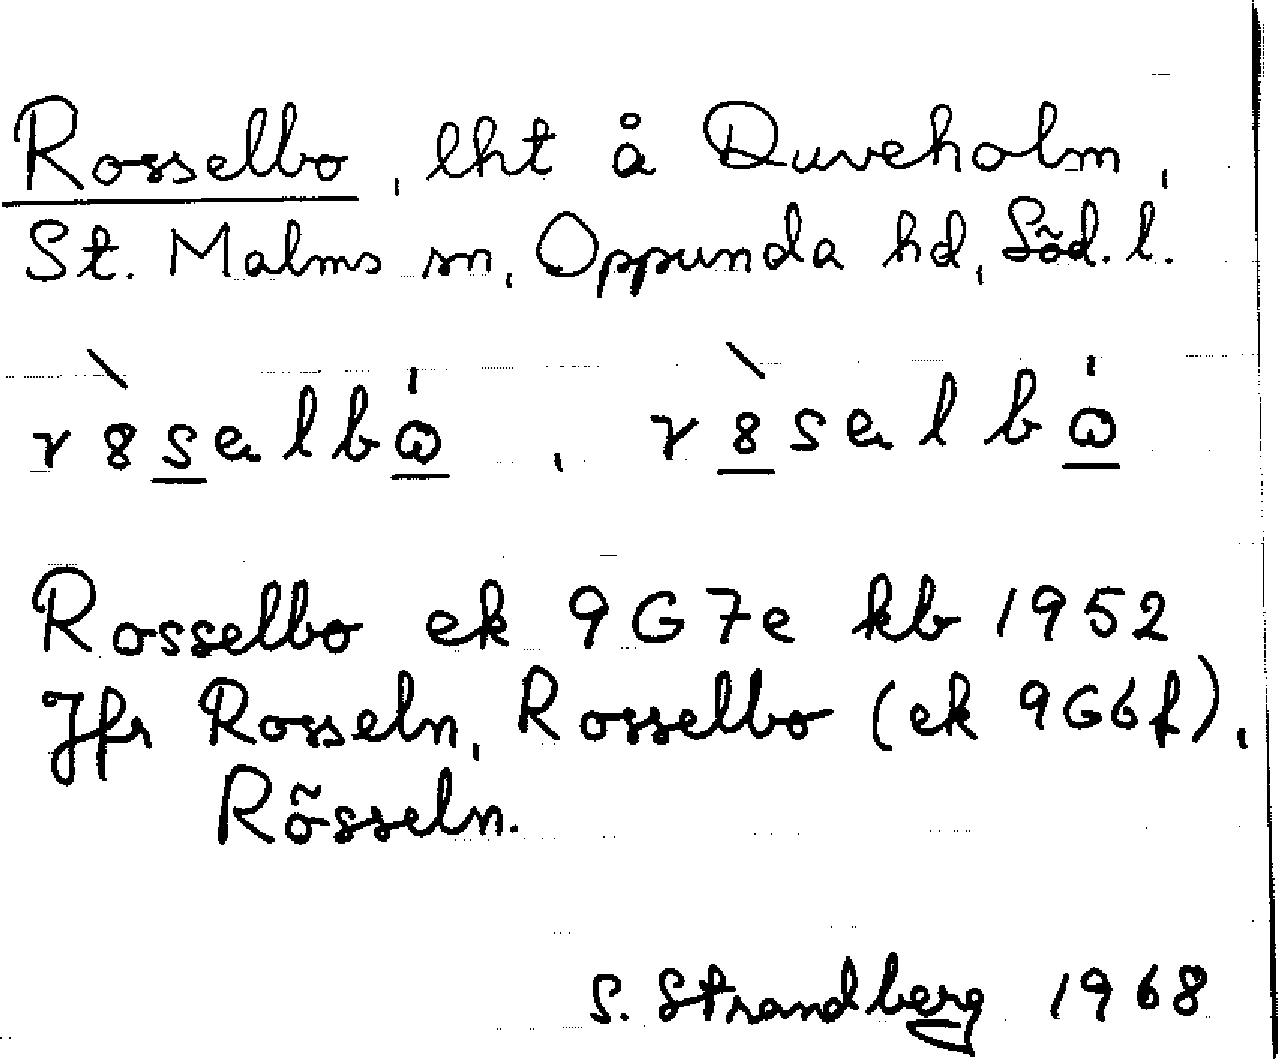 Rosselbo, lht å Duveholm,
St. Malms sn, Oppunda hd, Söd. l.
Rosselbo ek 9G7e kb 1952
Jfr Rosseln, Rosselbo (ek 9G6f),
Rösseln.
S. Strandberg 1968